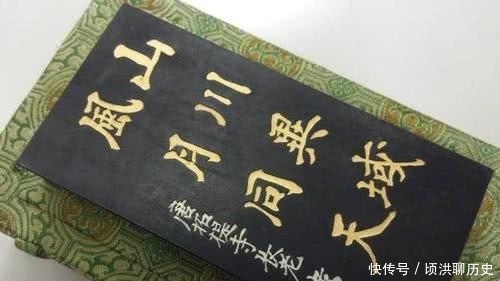 山川異域
風月同天
唐招提寺
快传号 / 顷洪聊历史